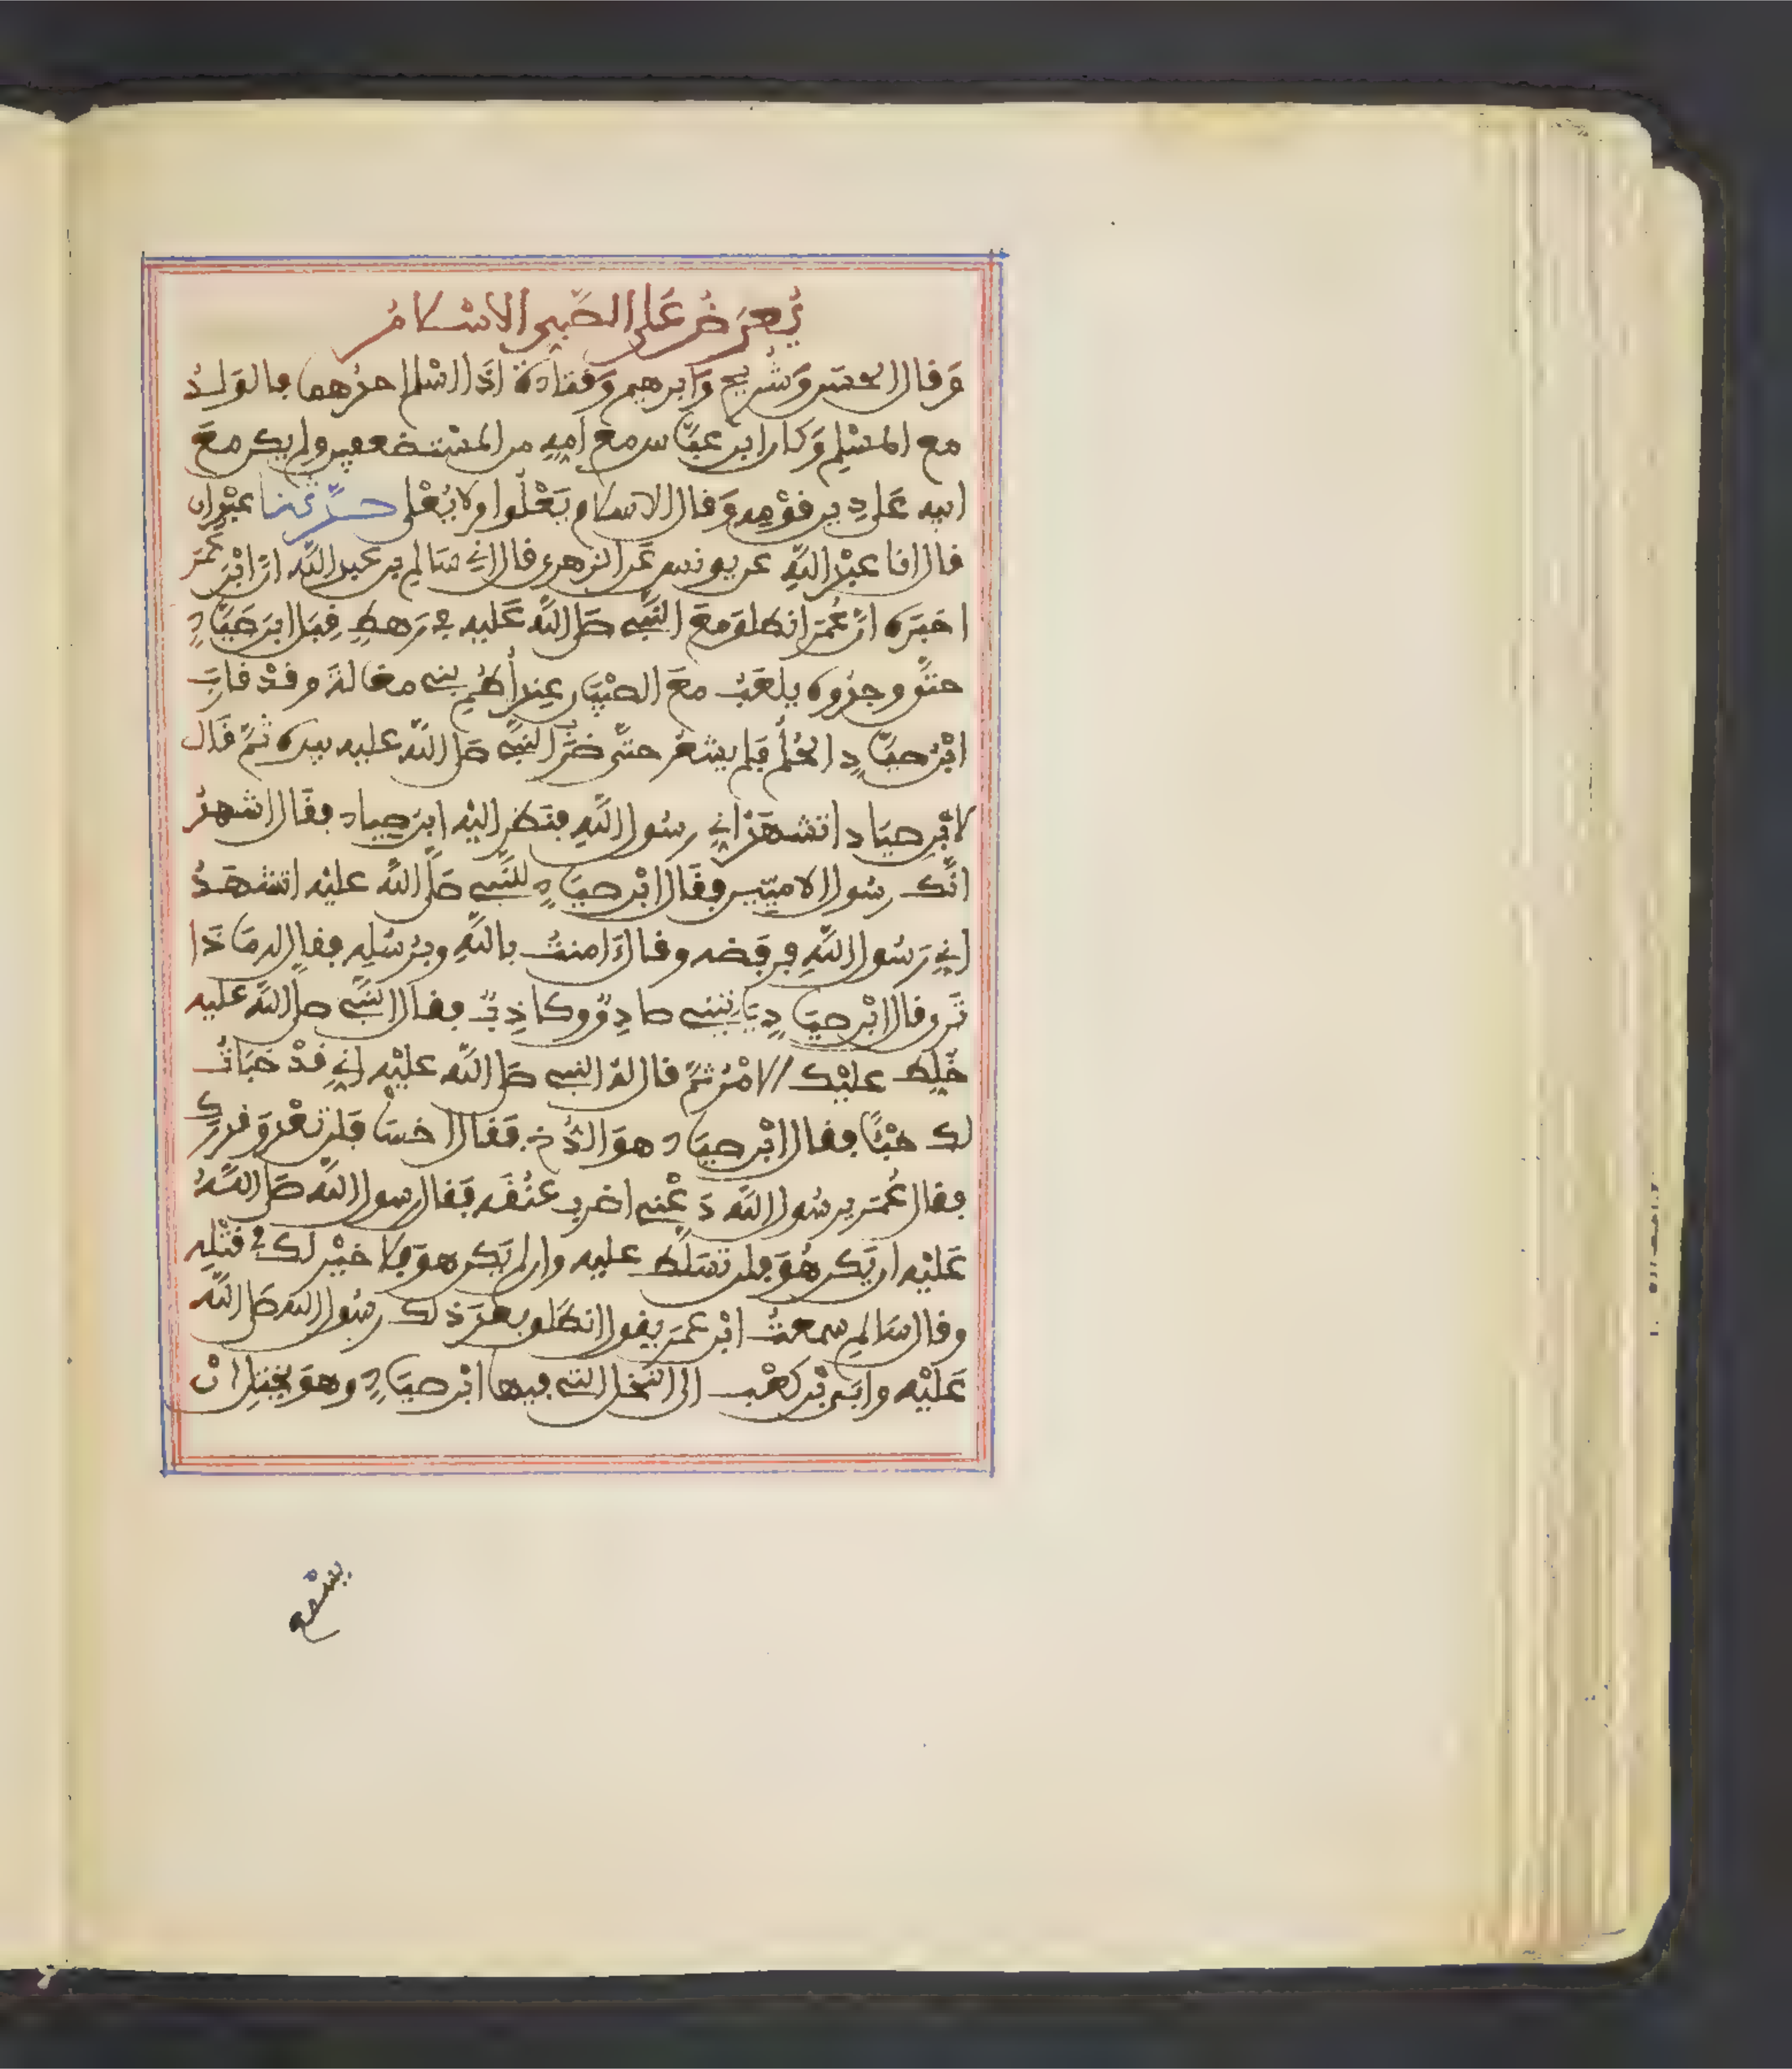 يُعرَضُ عَلى الصَّبي الاسْلامُ
وَقال الحسَن وَشُريح وَابرهيم وَقتادة اذَا اسْلم احدُهما فالوَلدُ
مع المسْلِم وَكان ابن عبَّاس مع امِهِ من المسْتضعفِين ولم يكن معَ
ابيه عَلى دِين قوْمِه وَقال الاسلام يَعْلُوا ولا يُعْلى حدَّثنا عبْدان
قال انا عبْد اللَّهِ عن يونس عَن الزهري قال اني سَالم بن عبد اللَّه انَّ ابْنَ عُمَرَ
اخبَره انَّ عُمَرَ انطلقَ معَ النَّبي صَلى اللَّه عَليه في رَهطٍ قِبَل ابن صَيَّادٍ
حتَّى وجدُوه يلعَبُ معَ الصِّبْيَان عِند أُطُمِ بني مغالةَ وقدْ قارَبَ
ابْنُ صيَّادٍ الحُلُمَ فَلم يشعُر حتَّى ضرَبَ النَّبي صَلى اللَّه عليه بيده ثمَّ قَال
لابْن صيَاد اتشهَدُ اني رسُول اللَّهِ فنَظَر اليْه ابن صياد فقَال اشهدُ
انَّك رسُول الاميّين فقَال ابْن صيَادٍ للنَّبي صَلَّى اللَّه عليْه اتشهَدُ
اني رَسُول اللَّهِ فرفَضه وقال ءَامنتُ باللَّهِ وبرُسُلِهِ فقال له مَا ذَا
تَرى قال ابْن صيَادٍ يَاتيني صادِقٌ وكاذِبٌ فقال النَّبي صلى اللَّه عليه
خُلِّط عليْك الامْرُ ثمَّ قال لهُ النبي صَلى اللَّه عليْه اني قدْ خبَاتُ
لك خبْئًا فقال ابْن صيَاد هوَ الدُّخ فقَال اخسَا فَلن تعْدوَ قدرك
فقال عُمَر يرسُول اللَّه دَعْني اضرب عنُقَه فقَال رسول اللَّه صَلى اللَّهُ
عَليْه ان يَكن هُوَ فلن تسَلَّط عليه وان لم يَكن هوَ فلا خيْر لك في قتْلِهِ
وقال سَالم سمعتُ ابْن عمَر يقول انطَلق بعْدَ ذلك رسُول اللَّه صَلى اللَّه
عَليْه وابَي بْن كعْب الى النَّخل التي فيها ابْن صيَادٍ وهوَ يختِل انْ
يسْمع